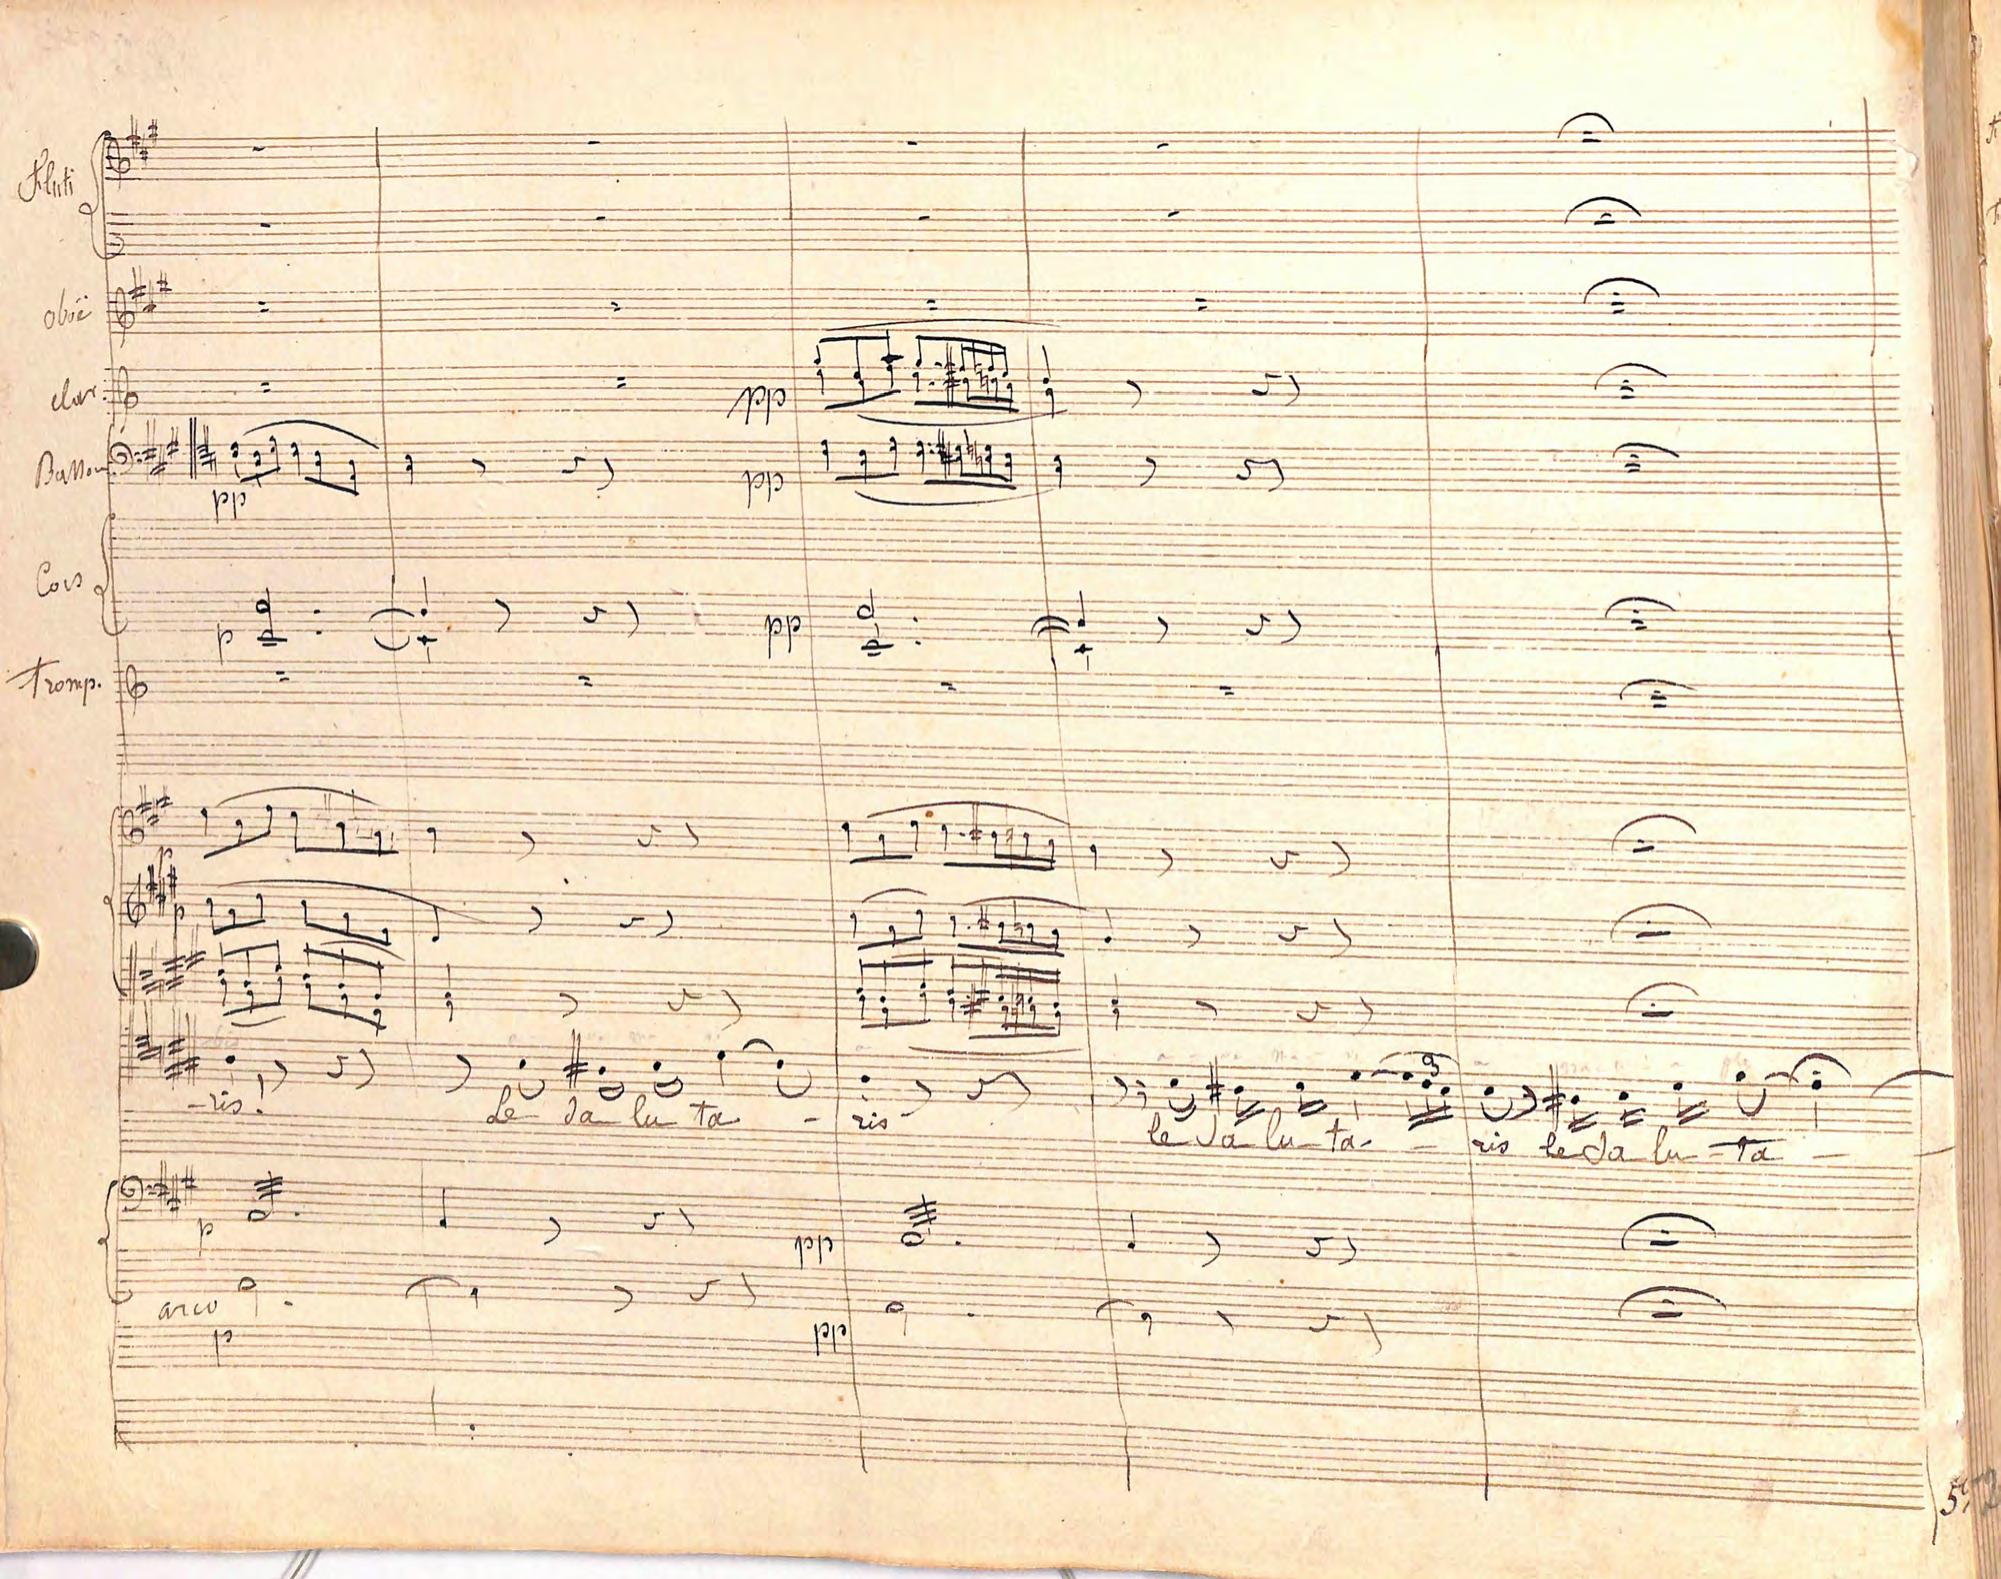 Fluti
oboë
clar:
Basson
pp
pp
pp
Cors
p
pp
Tromp.
p
p
-ris! Le Sa lu ta - ris le Sa lu ta - ris le Sa lu - ta -
p
pp
arco
p
pp